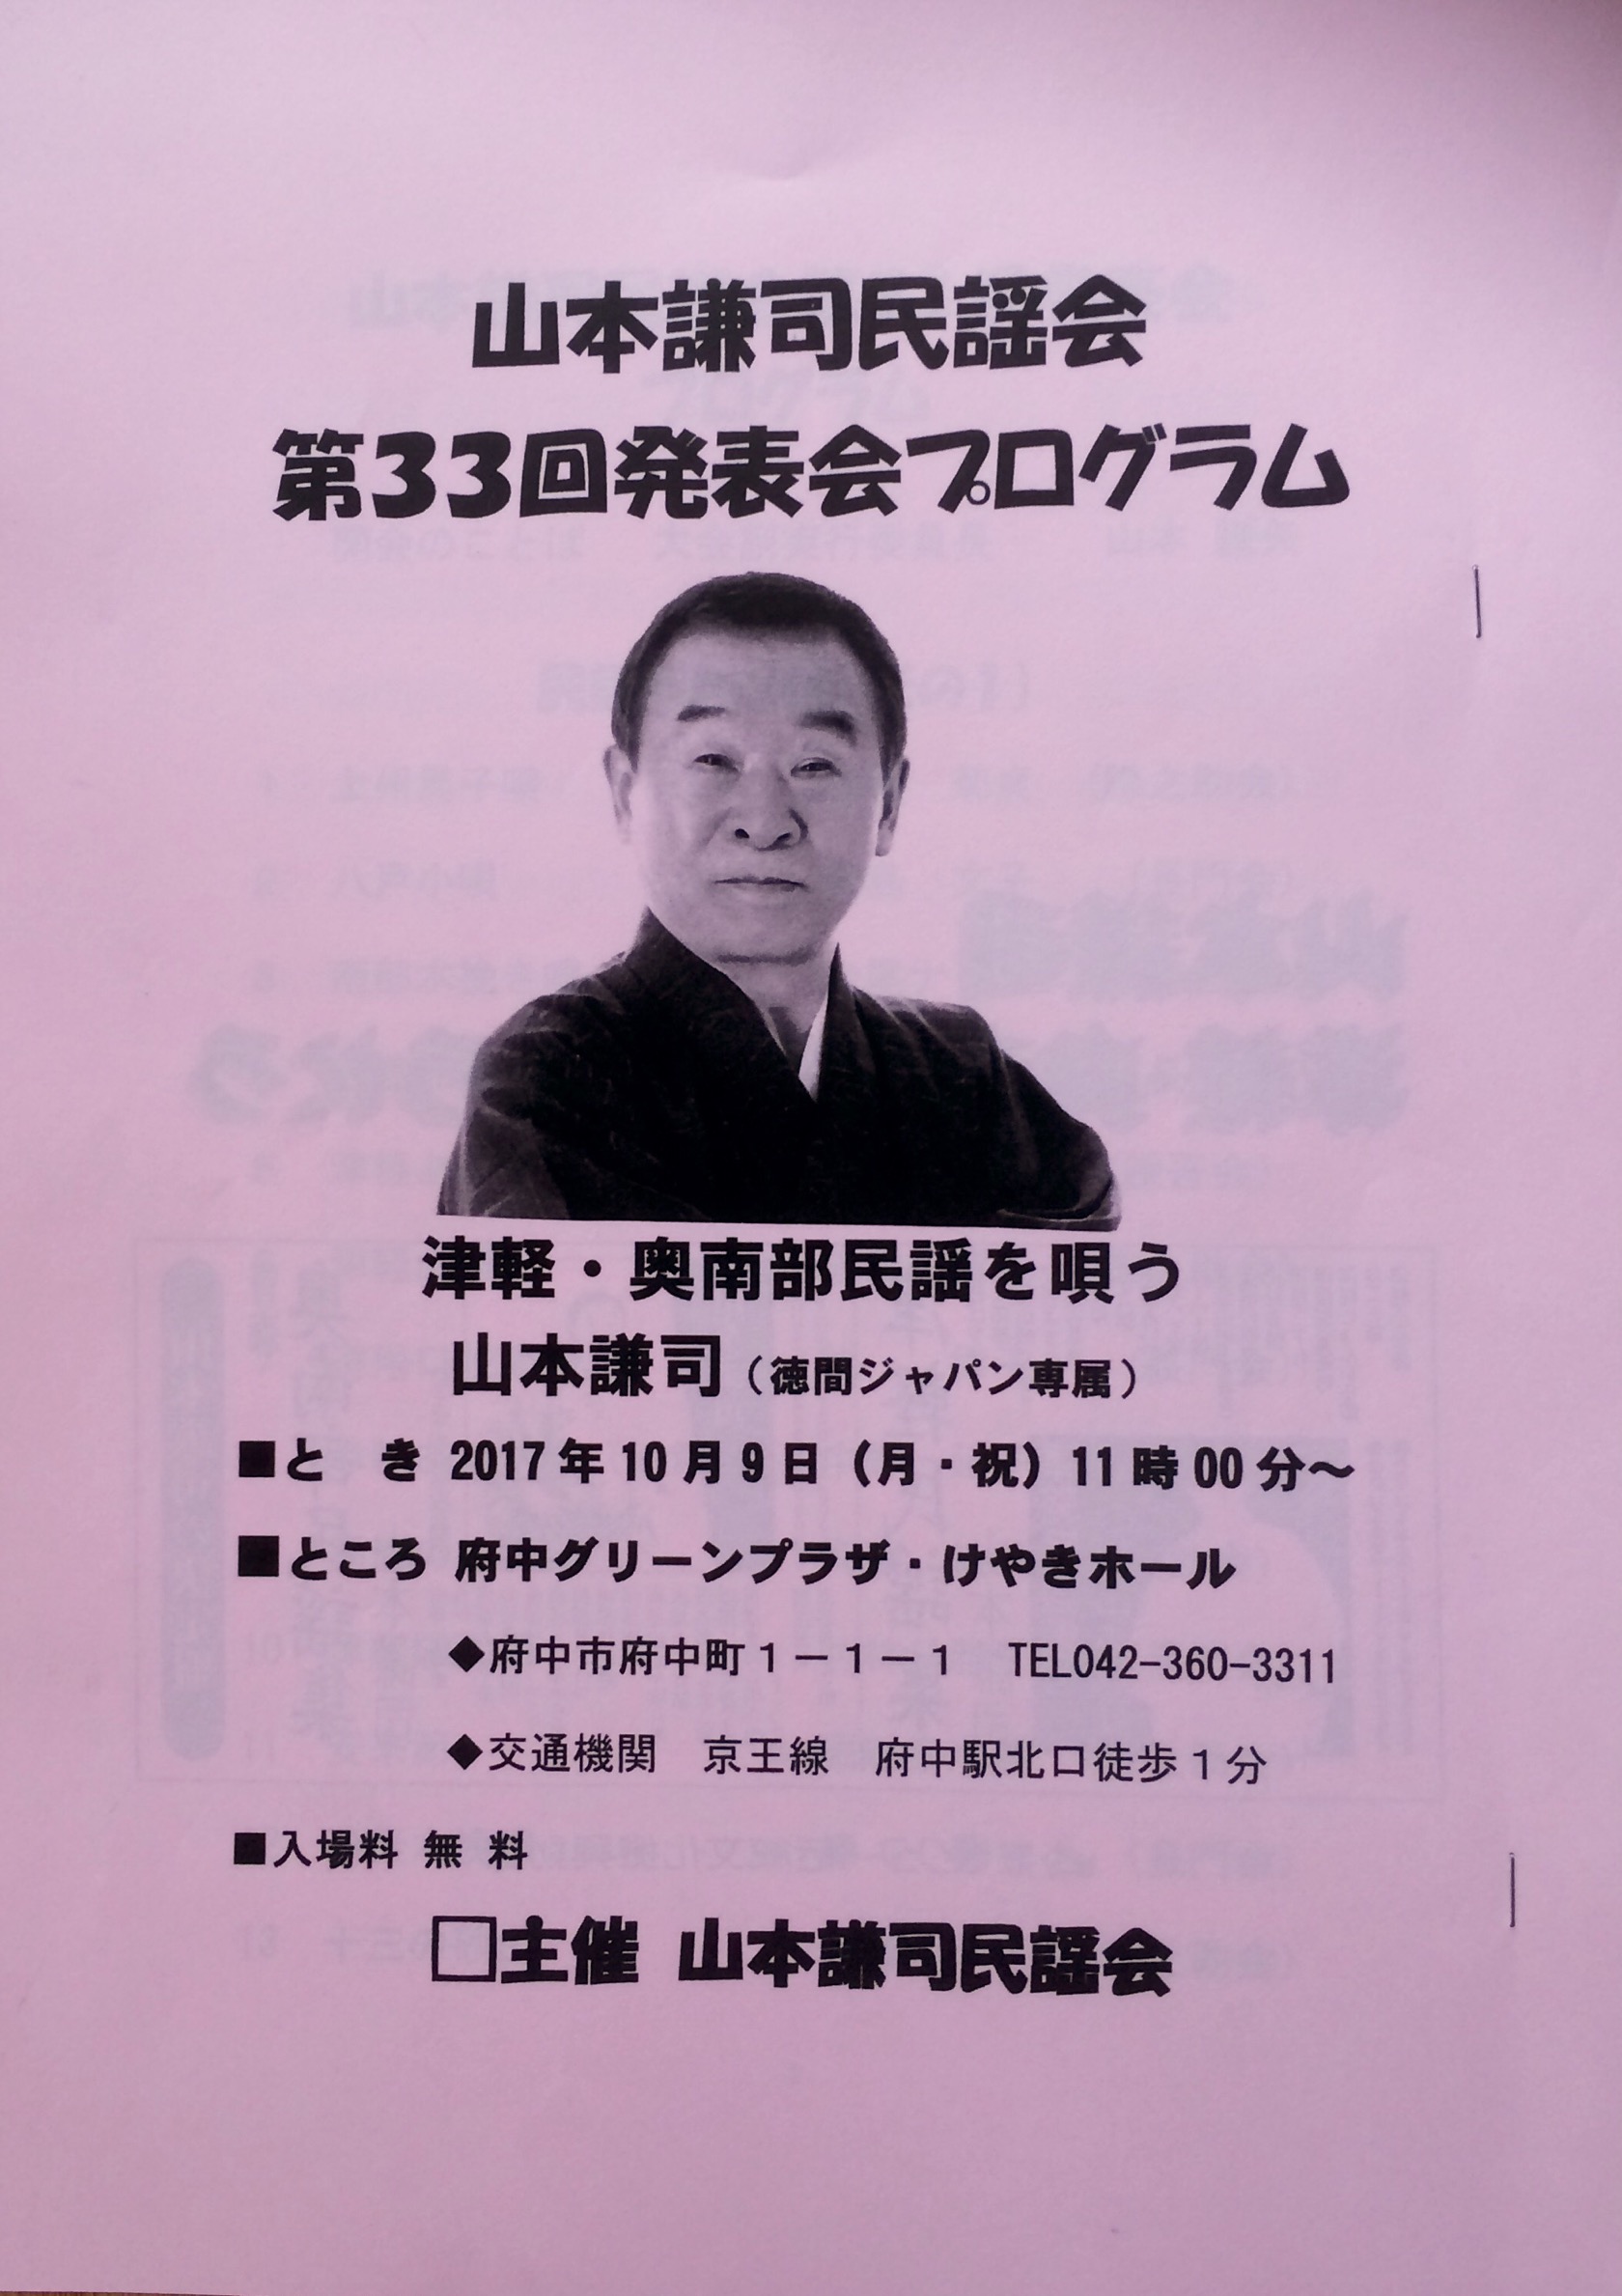 山本謙司民謡会
第33回発表会プログラム
津軽・奥南部民謡を唄う
山本謙司（徳間ジャパン専属）
■と　き 2017年10月9日（月・祝）11時00分～
■ところ 府中グリーンプラザ・けやきホール
◆府中市府中町１－１－１　TEL042-360-3311
◆交通機関　京王線　府中駅北口徒歩１分
■入場料 無 料
□主催 山本謙司民謡会